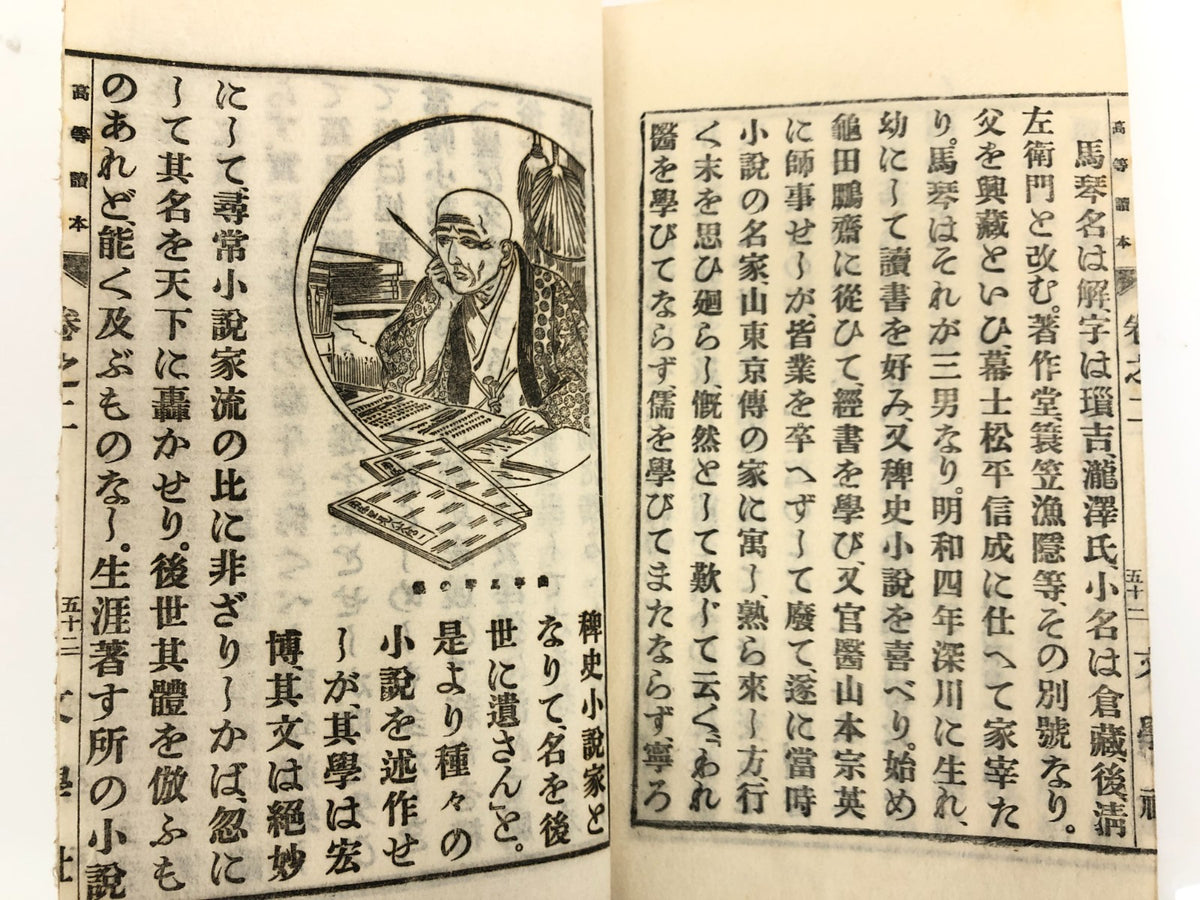 高等讀本 卷之二 五十二 文學社
馬琴名は解、字は瑣吉、瀧澤氏、小名は倉藏、後、淸
左衛門と改む。著作堂、簑笠漁隱等、その別號なり。
父を興藏といひ、幕士松平信成に仕へて家宰た
り。馬琴はそれが三男なり。明和四年深川に生れ、
幼にして讀書を好み、又稗史小說を喜べり。始め
龜田鵬齋に從ひて、經書を學び、又官醫山本宗英
に師事せしが、皆業を卒へずして廢て、遂に當時
小說の名家、山東京傳の家に寓し、熟ら來し方、行
く末を思ひ廻らし、慨然として歎じて云く、『われ
醫を學びてならず、儒を學びてまたならず、寧ろ
稗史小說家と
なりて、名を後
世に遺さん』と。
是より種々の
小說を述作せ
しが、其學は宏
博、其文は絕妙
にして、尋常小說家流の比に非ざりしかば、忽に
して其名を天下に轟かせり。後世其體を倣ふも
のあれど、能く及ぶものなし。生涯著す所の小說
曲亭馬琴の
高等讀本 卷之二 五十二 文學社